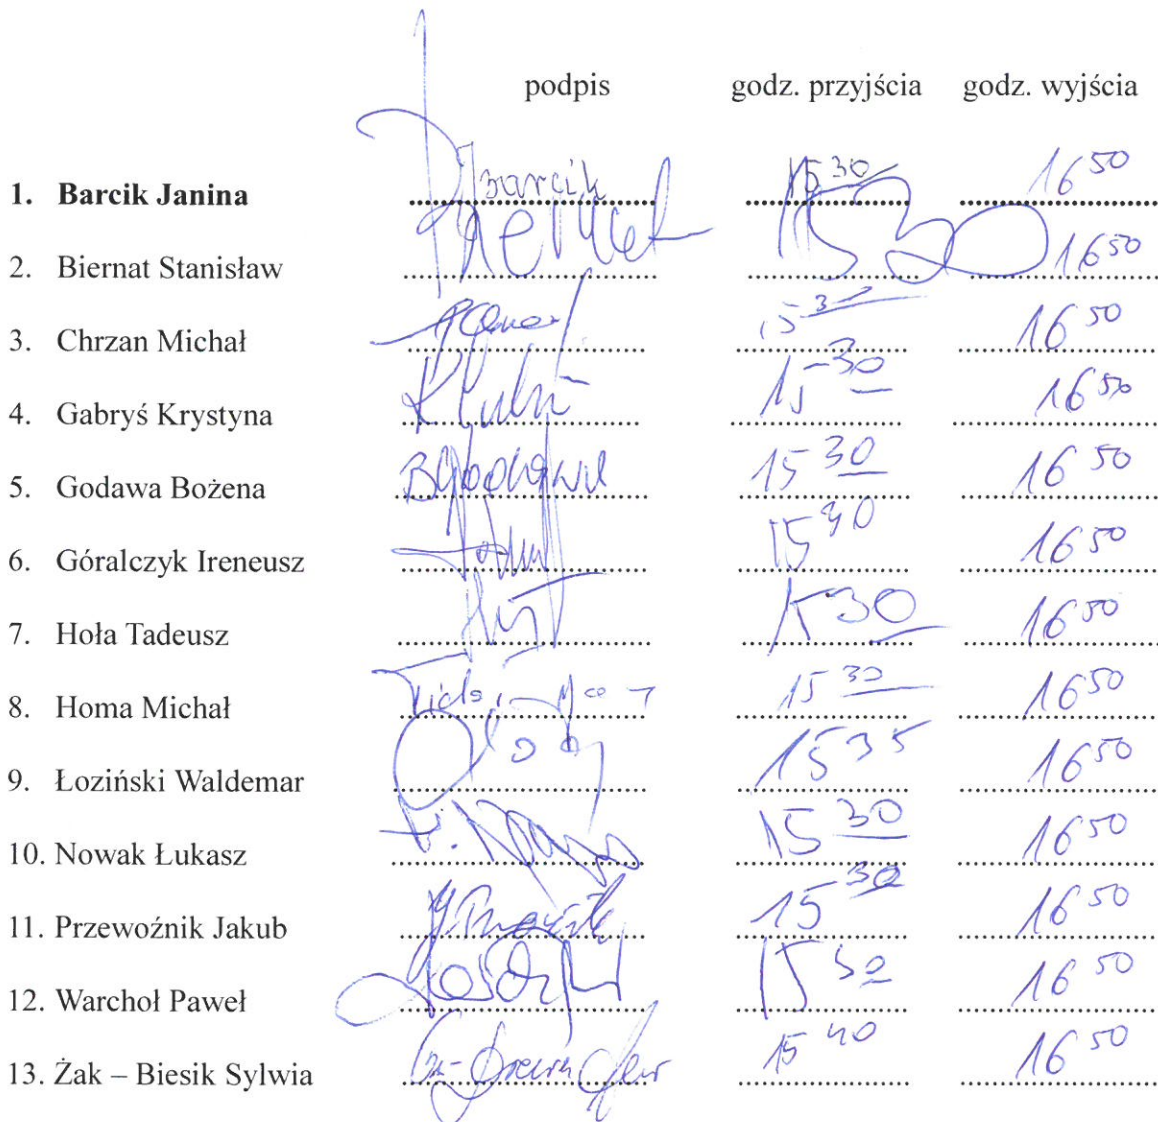 podpis godz. przyjścia godz. wyjścia
1. Barcik Janina JBarcik 15 30 16 50
2. Biernat Stanisław 15 30 16 50
3. Chrzan Michał 15 30 16 50
4. Gabryś Krystyna 15 30 16 50
5. Godawa Bożena 15 30 16 50
6. Góralczyk Ireneusz 15 30 16 50
7. Hoła Tadeusz 15 30 16 50
8. Homa Michał 15 30 16 50
9. Łoziński Waldemar 15 35 16 50
10. Nowak Łukasz 15 30 16 50
11. Przewoźnik Jakub 15 30 16 50
12. Warchoł Paweł 15 30 16 50
13. Żak – Biesik Sylwia 15 40 16 50